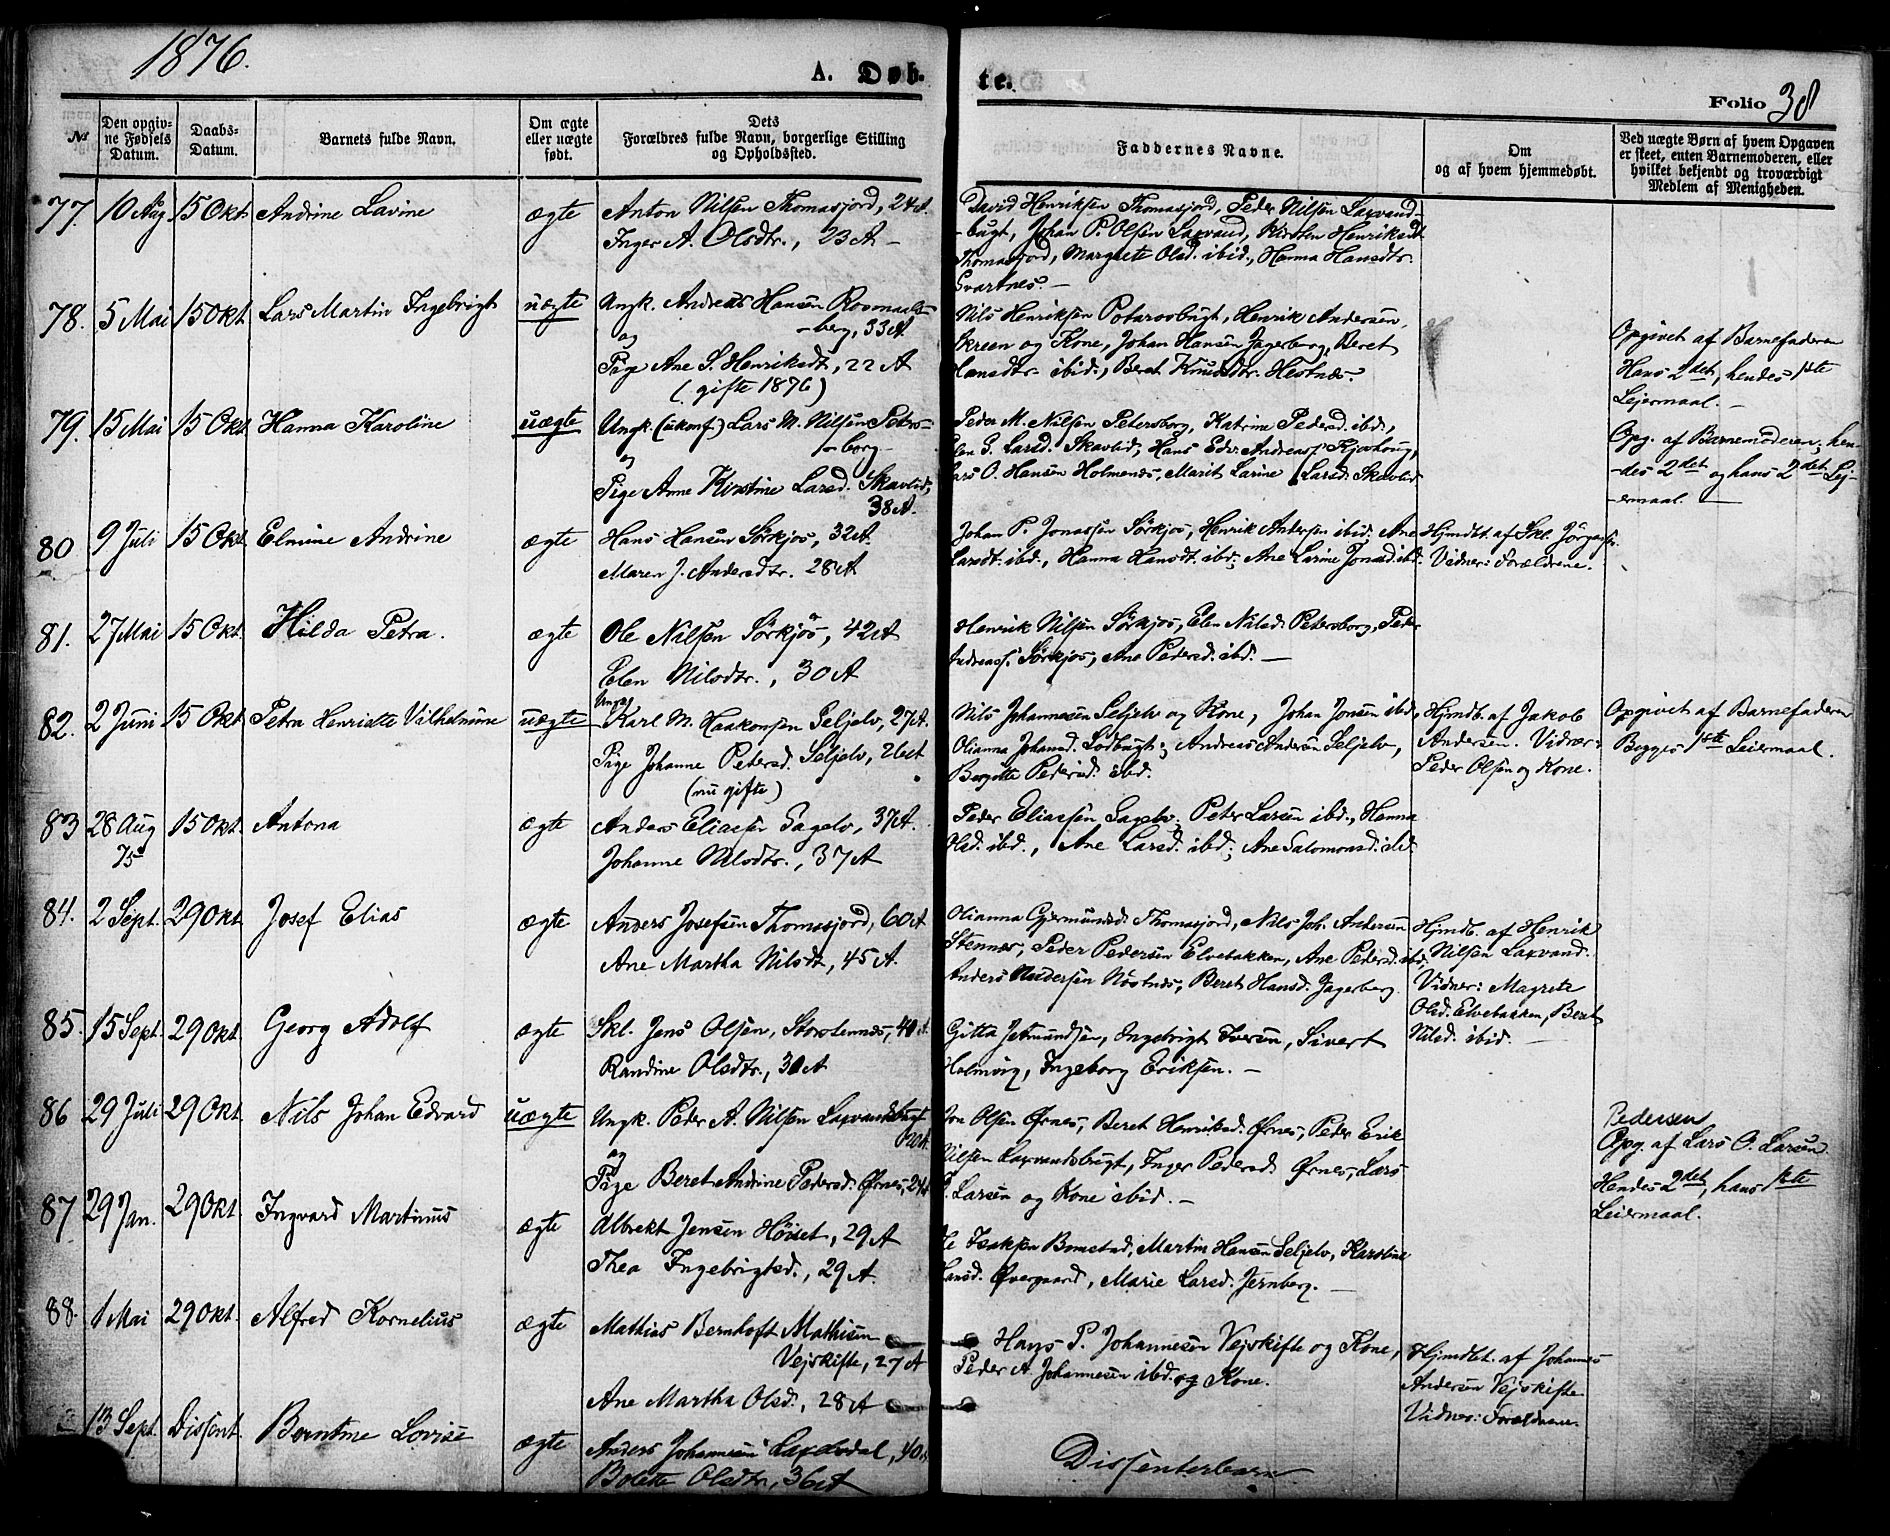 1876.
A. Døb-
te.
Folio 38
№
Den opgiv-
ne Fødsels
Datum.
Daabs-
Datum.
Barnets fulde Navn.
Om ægte
eller uægte
født.
Dets
Forældres fulde Navn, borgerlige Stilling
og Opholdsted.
Faddernes Navne.
Om
og af hvem hjemmedøbt.
Ved uægte Børn af hvem Opgaven
er skeet, enten Barnemoderen, eller
hvilket bekjendt og troværdigt
Medlem af Menigheden.
77. 10 Aug 15 Okt Andrine Lavine ægte
Anton Nilsen Thomasjord, 24 A.
Inger A. Olsdtr., 23 A –
David Henriksen Thomasjord, Peder Nilsen Laxvand-
-bugt, Johan P. Olsen Laxvand, Kirsten Henriksdt
Thomasjord, Margrete Olsd. ibid., Hanna Hansdtr.
Svartnes. –
78. 5 Mai 15 Okt. Lars Martin Ingebrigt uægte
Ungk. Andreas Hansen Rosmaals-
-berg, 33 A
og
Pige Ane S. Henriksdt, 22 A
(gifte 1876)
Nils Henriksen Henrik Andersen,
Skreen og Kone, Johan Hansen Jagerberg, Beret
Hansdtr. ibid., Beret Knudsdtr. Hestnes.
Opgivet af Barnefaderen
Hans 2det, hendes 1ste
Leiermaal. –
79. 15 Mai 15 Okt Hanna Karoline uægte
Ungk. (ukonf.) Lars M. Nilsen Peters-
-borg
og
Pige Anne Kirstine Larsd. Skavlid,
38 A.
Peder M. Nilsen Petersborg, Katrine Pedersd. ibd.,
Elen S. Larsd. Skavlid, Hans Edv. Andreass.
Lars O. Hansen Holmenes, Marit Larine Larsd. Skavlid
Opg. af Barnemoderen; hen-
-des 2det og hans 2det Lej-
-ermaal –
80 9 Juli 15 Okt. Elmine Andrine ægte
Hans Hansen Sørkjos, 32 A.
Maren J. Andersdtr. 28 A
Johan P. Jonassen Sørkjos, Henrik Andersen ibid; Ane
Larsdt. ibd., Hanna Hansdt. ibd; Ane Larine Jonasd. ibd.
Hjmdbt. af Skl. Jørgensen.
Vidner: Forældrene.
81. 27 Mai 15 Okt. Hilda Petra. ægte
Ole Nilsen Sørkjos, 42 A
Elen Nilsdtr., 30 A
Henrik Nilsen Sørkjos, Elen Nilsd. Petersborg, Peder
Andreass. Sørkjos, Ane Pedersd. ibd. –
82. 2 Juni 15 Okt Petra Henriette Vilhelmine uægte
Ungk.
Karl M. Haakonsen Seljelv, 27 A.
Pige Johanne Petersd. Seljelv, 26 A
(nu gifte)
Nils Johannesen Seljelv og Kone, Johan Jonsen ibd,
Olianna Johansd. Lodbugt; Andreas Andersen Seljelv,
Bergitte Pedersd. ibd.
Hjmdb. af Jakob
Andersen. Vidner:
Peder Olsen og Kone.
Opgivet af Barnefaderen
Begges 1ste Leiermaal.
83 28 Aug 75 15 Okt. Antona ægte
Anders Eliassen Sagelv, 37 A.
Johanne Nilsdtr., 37 A
Peder Eliassen Sagelv, Peter Larsen ibd., Hanna
Olsd. ibd., Ane Larsd. ibd; Ane Salomonsd. ibd.
84. 2 Sept. 29 Okt. Josef Elias ægte
Anders Josefsen Thomasjord, 60 A
Ane Martha Nilsdt, 45 A.
Olianna Gjermundsd. Thomasjord, Nils Joh. Andersen
Stennes, Peder Pedersen Elvebakken, Ane Pedersd. ibd,
Anders Andersen Nøstnes, Beret Hansd. Jagerberg
Hjmdb. af Henrik
Nilsen Laxvand.
Vidner: Magrete
Olsd. Elvebakken, Beret
Nilsd. ibid. –
85. 15 Sept. 29 Okt. Georg Adolf ægte
Skl. Jens Olsen, Storstennes, 40 A.
Randine Olsdtr., 30 A
Gitta Jetmundsen, Ingebrigt Iversen, Sivert
Holmvig, Ingeborg Eriksen. –
86 29 Juli 29 Okt. Nils Johan Edvard uægte
Ungk. Peder A. Nilsen Laxvandsbugt
20 A
og
Pige Beret Andrine Pedersd. Ørnes, 24 A
Jon Olsen Ørnes, Beret Henriksd. Ørnes, Peder Erik
Nilsen Laxvandsbugt, Inger Pedersd Ørnes, Lars
O. Larsen og Kone ibid. –
Pedersen
Opg. af Lars O. Larsen
Hendes 2det, hans 1ste
Leiermaal.
87 29 Jan. 29 Okt Ingvard Martinus ægte
Albrekt Jensen Høiset, 29 A
Thea Ingebrigtsd., 29 A
Ole Isaksen Bomstad, Martin Hansen Seljelv, Karoline
Hansd. Øvergaard, Marie Larsd. Jernberg. –
88. 1 Mai 29 Okt. Alfred Kornelius ægte
Mathias Bernhoft Mathisen
Vejskifte, 27 A
Ane Martha Olsd., 28 A
Hans P. Johannesen Vejskifte og Kone,
Peder A. Johannesen ibd. og Kone.
Hjmdbt. af Johannes
Andersen Vejskifte
Vidner: Forældrene.
13 Sept. Dissent. Berntine Lovise ægte
Anders Johannesen Laxedal, 40 A
Bolette Olsdtr., 36 A
Dissenterbarn